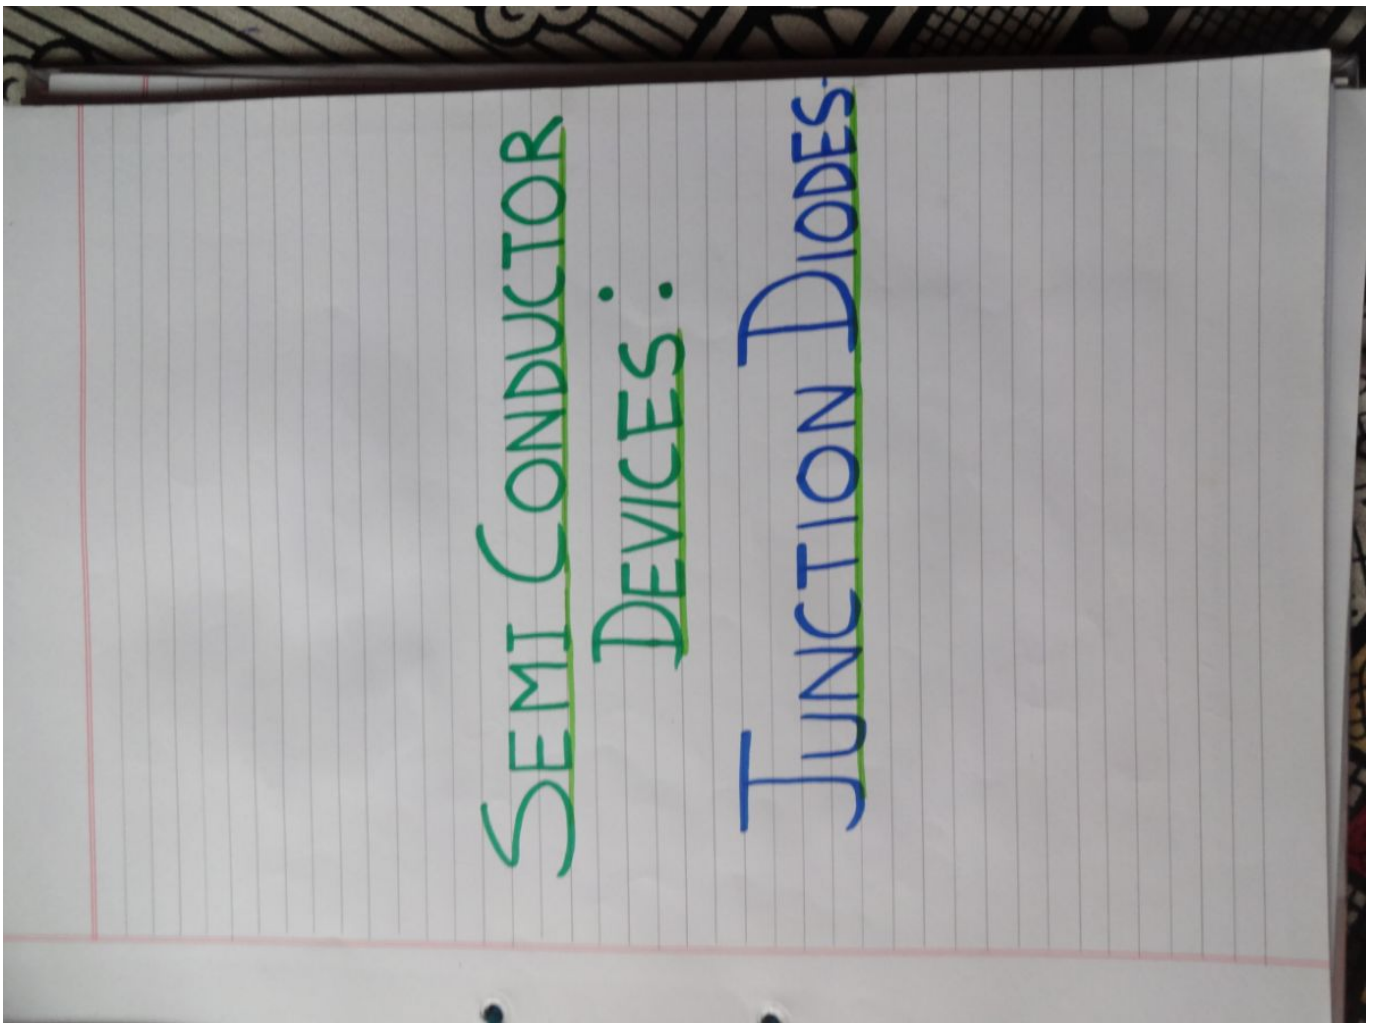 SEMI CONDUCTOR
DEVICES:
JUNCTION DIODES-